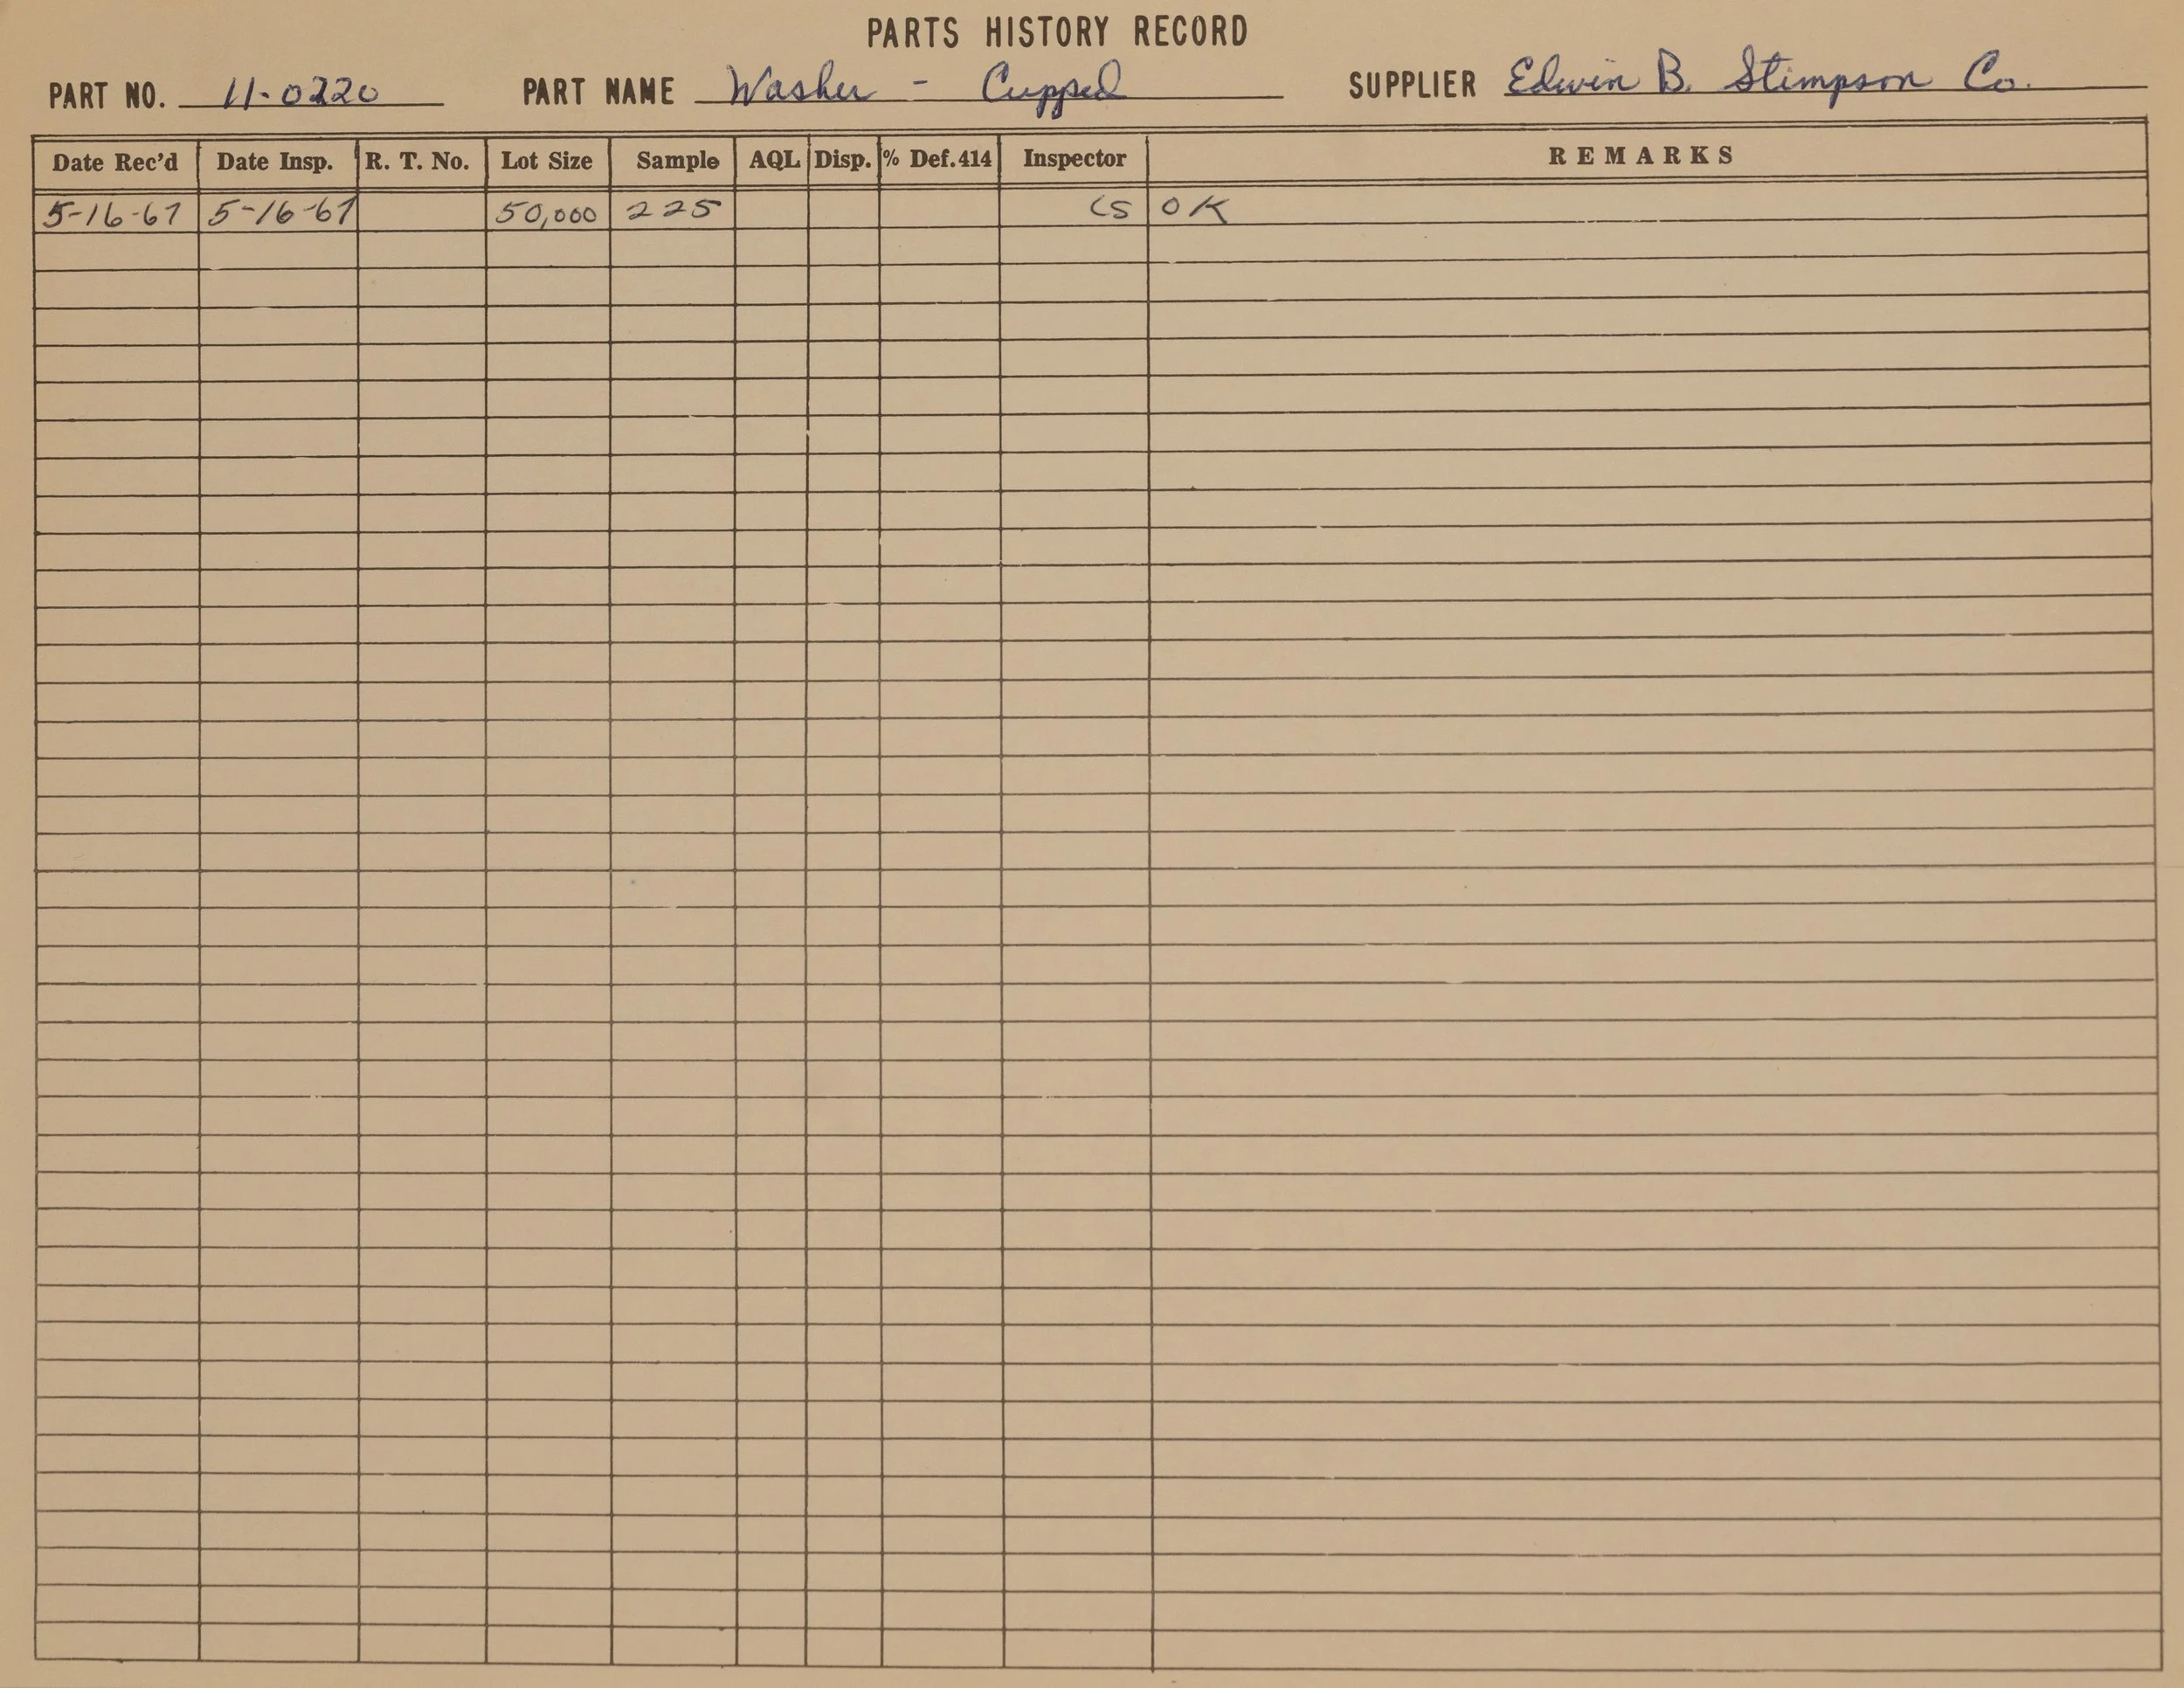 PARTS HISTORY RECORD
PART NO. 11-0220 PART NAME Washer - Cupped SUPPLIER Edwin B. Stimpson Co.
Date Rec'd Date Insp. R. T. No. Lot Size Sample AQL Disp. % Def. 414 Inspector REMARKS
5-16-67 5-16-67 50,000 225 CS OK